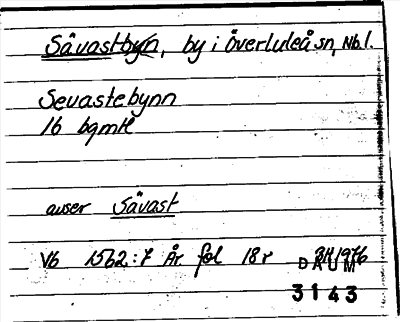 Sävastbyn, by i Överluleå sn, Nb.l.
Sevastebynn
16 bgmk
avser Sävast
Vb 1562:7 År fol 18r
DAUM
3143